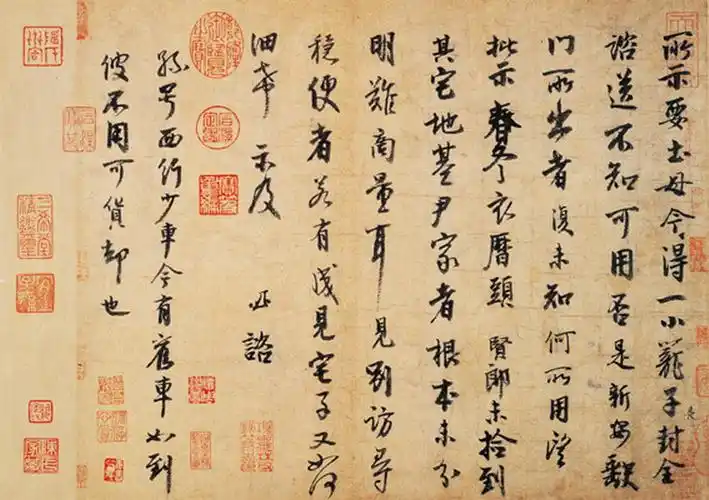 所示要土母今得一小籠子封全
諮送不知可用否是新安缺
門所出者復未知何所用望
批示春冬衣曆頭賢郎未檢到
其宅地基尹家者根本未分
明難商量耳見別訪尋
穩便者若有成見宅子又如何
細希示及 止諮
孫号西行少車今有舊車如到
彼不用可貨却也